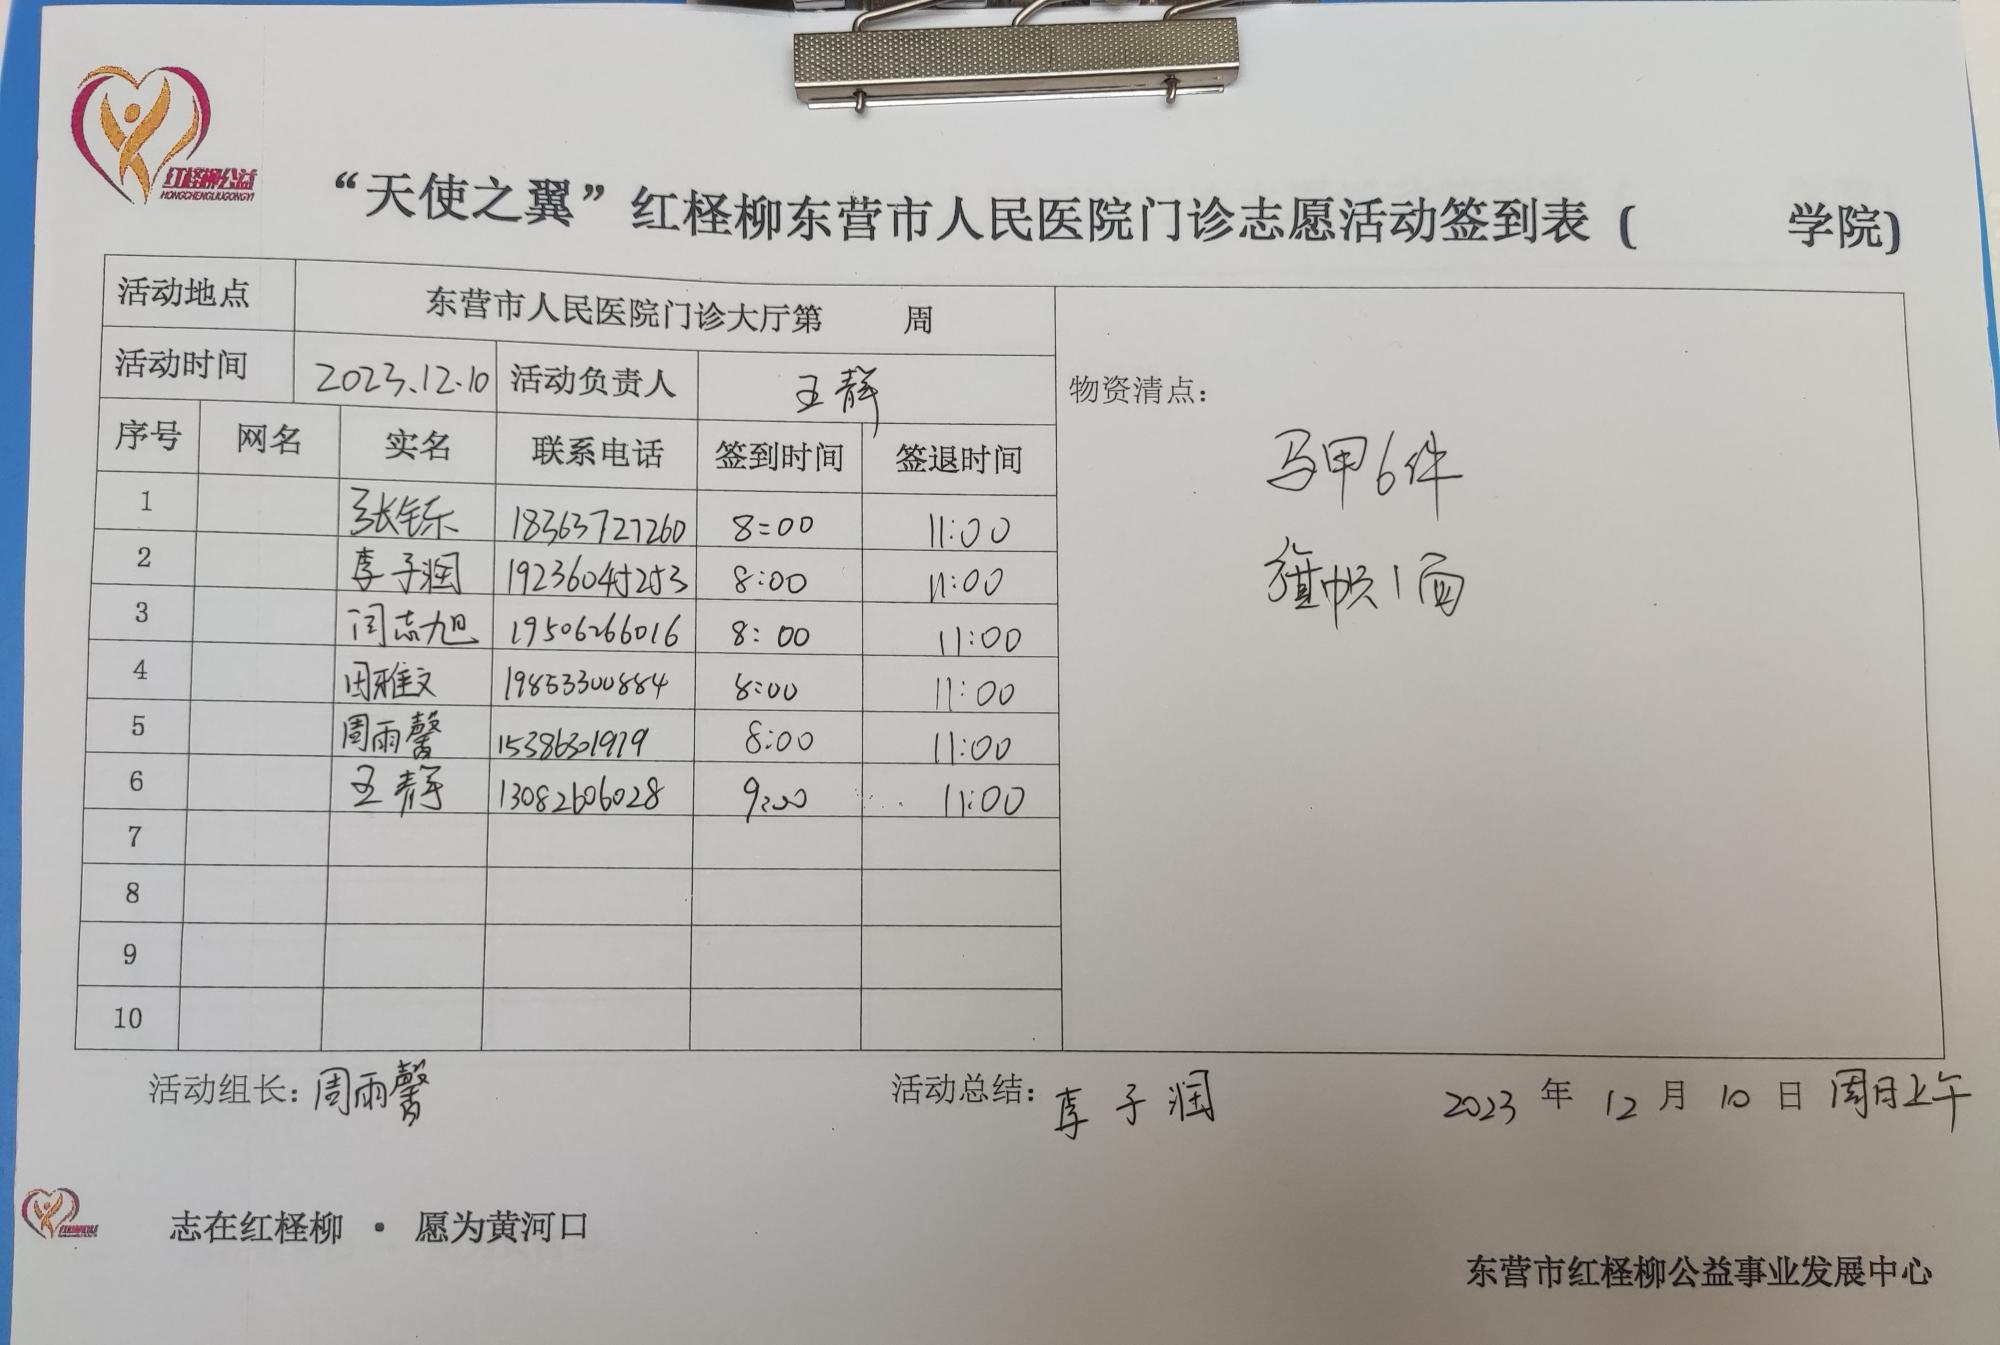 红柽柳公益
HONGCHENGLIUGONGYI
“天使之翼”红柽柳东营市人民医院门诊志愿活动签到表 (     学院)
活动地点 东营市人民医院门诊大厅第     周
活动时间 2023.12.10 活动负责人 王静
物资清点：
序号 网名 实名 联系电话 签到时间 签退时间
马甲6件
1 张钰乐 18363727260 8:00 11:00
2 李子润 19236045253 8:00 11:00
旗帜1面
3 闫志旭 19506266016 8:00 11:00
4 田雅文 19853300884 8:00 11:00
5 周雨馨 15386301979 8:00 11:00
6 王静 13082606028 9:00 11:00
7
8
9
10
活动组长：周雨馨 活动总结：李子润 2023 年 12 月 10 日 周日上午
志在红柽柳 · 愿为黄河口
东营市红柽柳公益事业发展中心